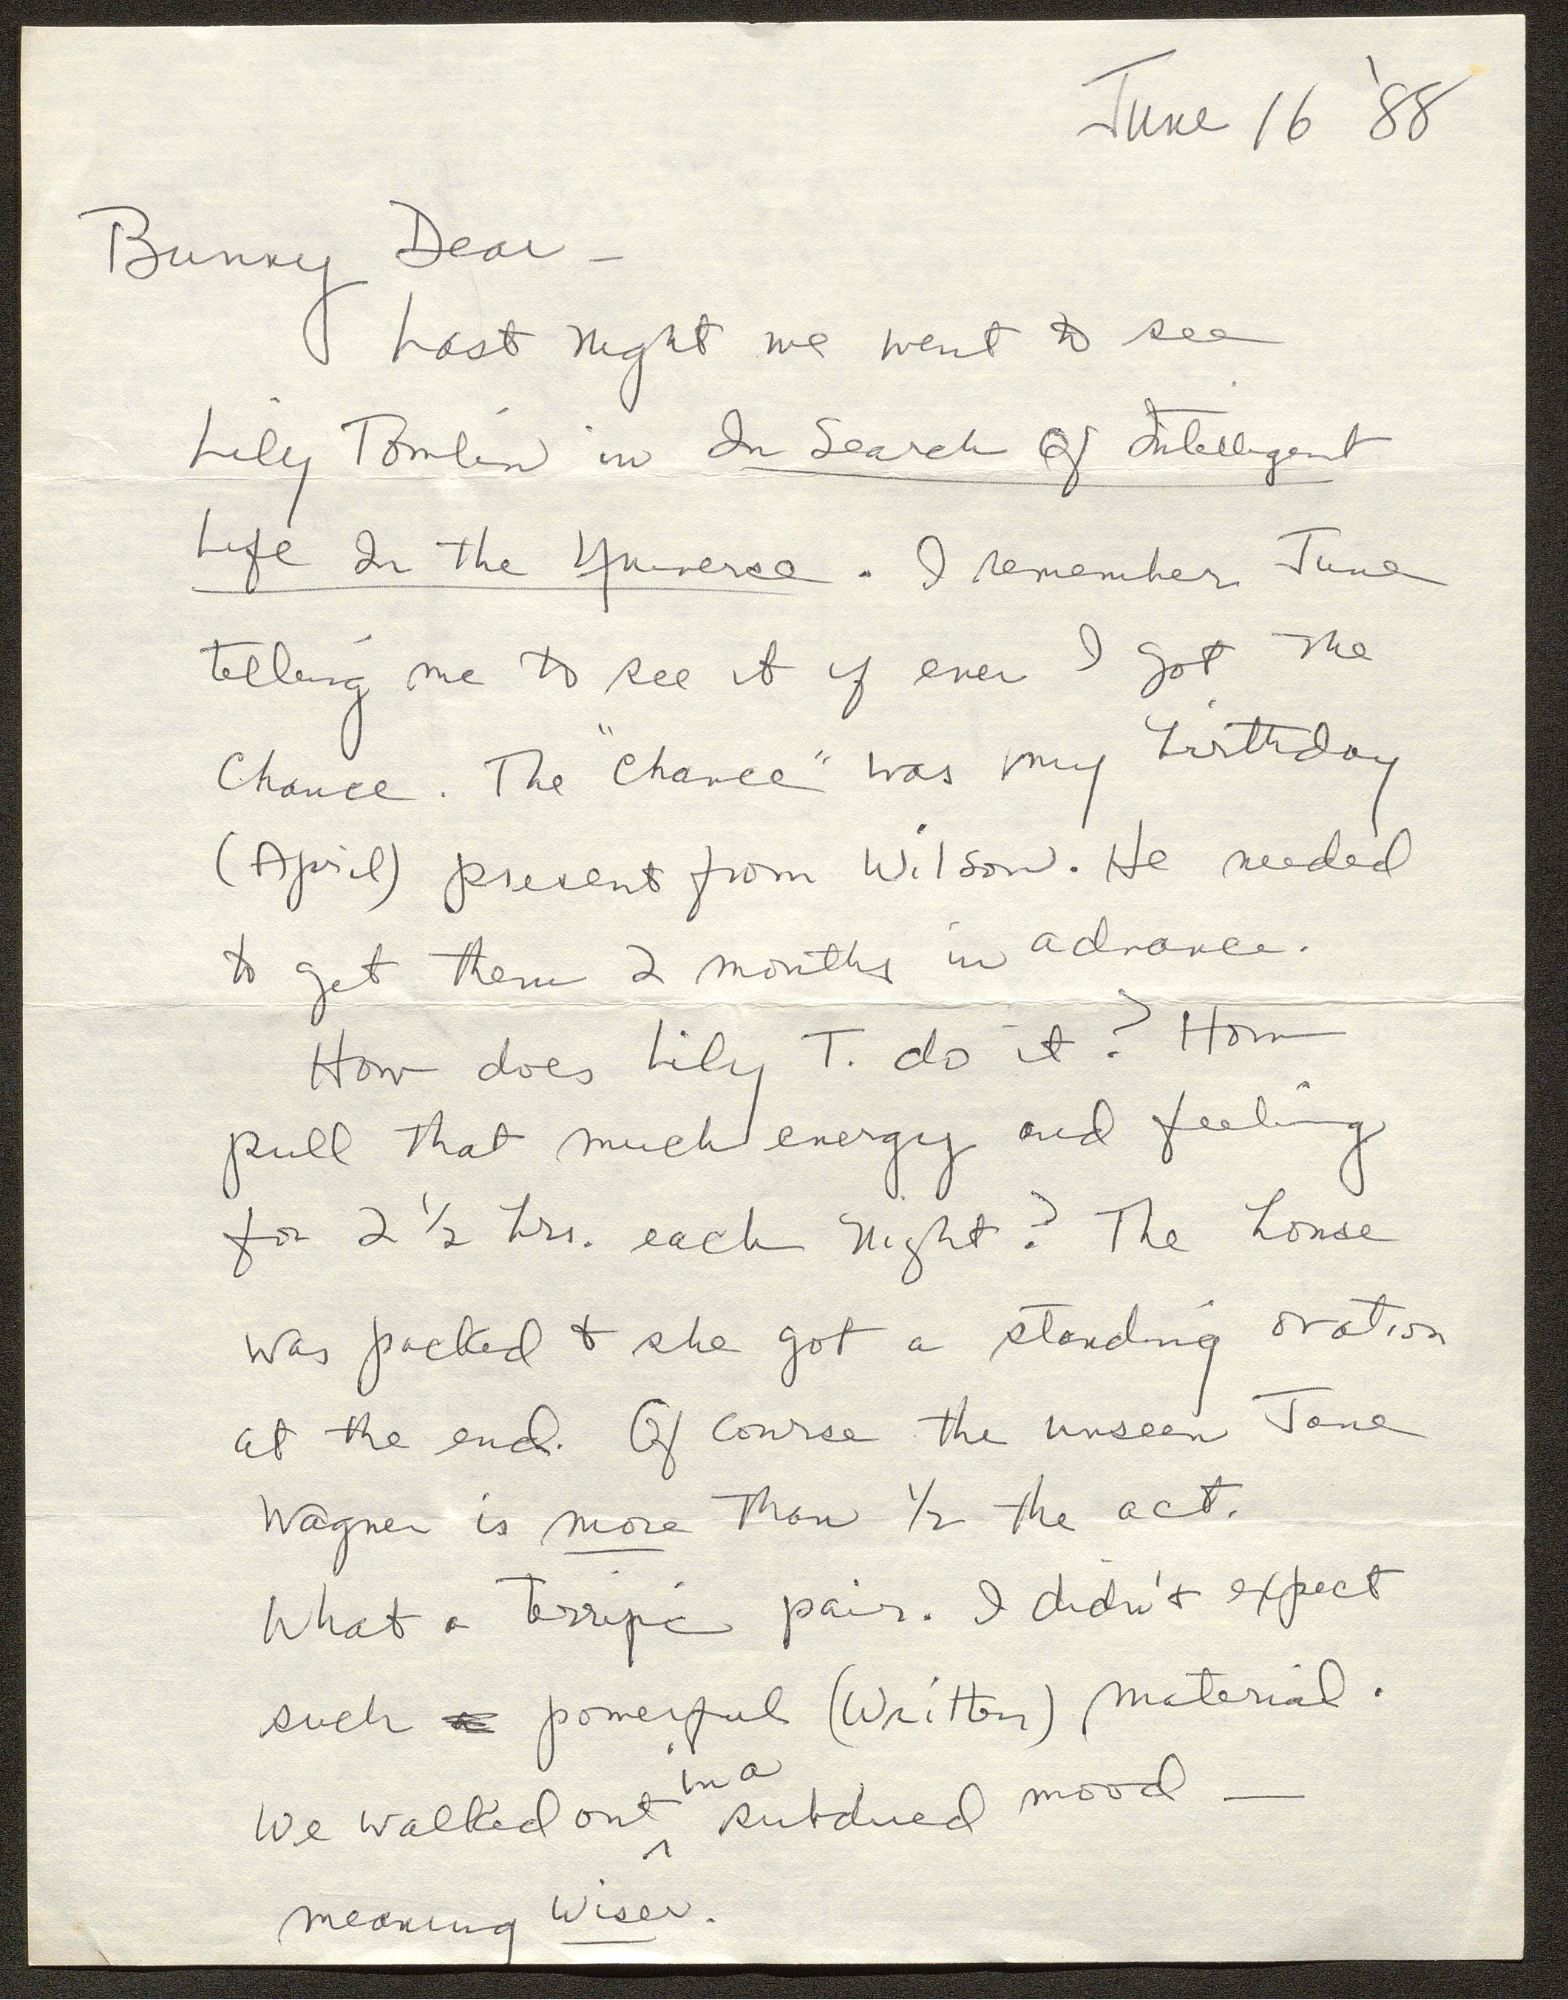 June 16 '88
Bunny Dear –
Last night we went to see
Lily Tomlin in In Search Of Intelligent
Life In the Universe. I remember June
telling me to see it if ever I got the
Chance. The "Chance" was my birthday
(April) present from Wilson. He needed
to get them 2 months in advance.
How does Lily T. do it? How
pull that much energy and feeling
for 2 1/2 hrs. each night? The house
was packed & she got a standing ovation
at the end. Of course the unseen Jane
Wagner is more than 1/2 the act.
What a terrific pair. I didn't expect
such powerful (written) material.
We walked out in a subdued mood —
meaning wiser.